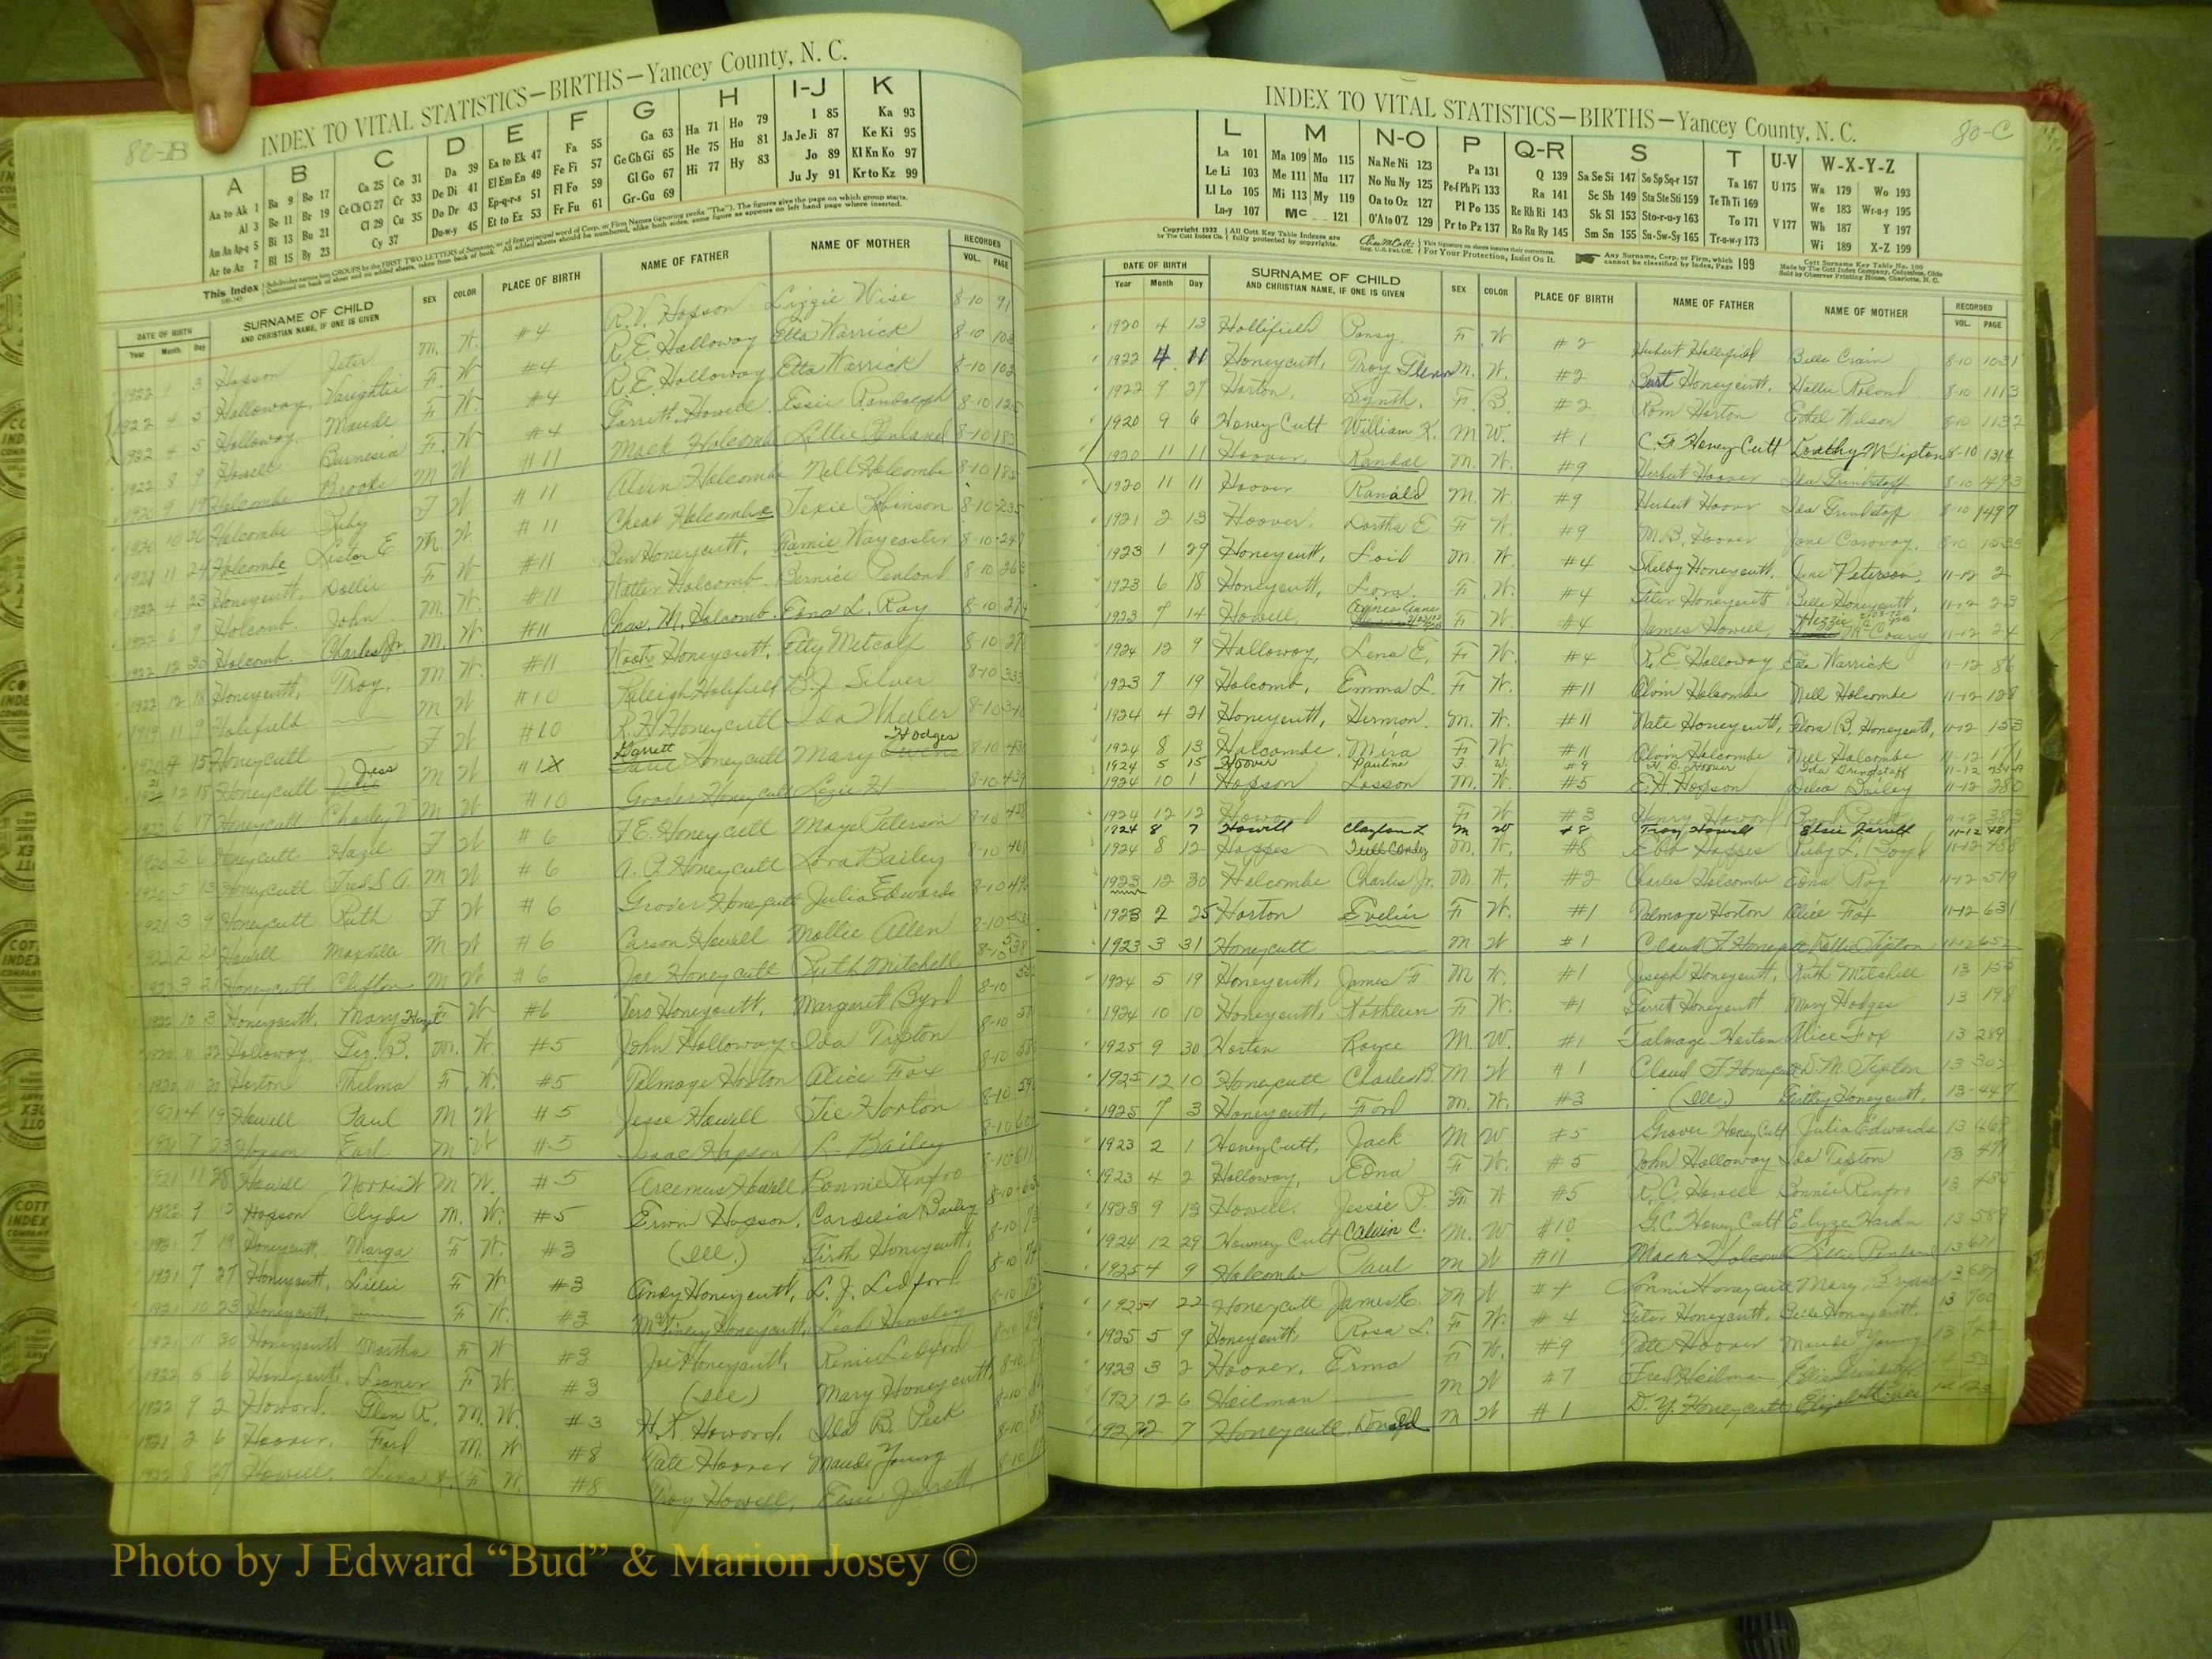 80-B
INDEX TO VITAL STATISTICS—BIRTHS—Yancey County, N. C.
A B C D E F G H I-J K
Aa to Ak 1 Ba 9 Bo 17 Ca 25 Co 31 Da 39 Ea to Ek 47 Fa 55 Ga 63 Ha 71 Ho 79 I 85 Ka 93
Al 3 Be 11 Br 19 Ce Ch Ci 27 Cr 33 De Di 41 El Em En 49 Fe Fi 57 Ge Gh Gi 65 He 75 Hu 81 Ja Je Ji 87 Ke Ki 95
Am An Ap-q 5 Bi 13 Bu 21 Cl 29 Cu 35 Do Dr 43 Ep-q-r-s 51 Fl Fo 59 Gl Go 67 Hi 77 Hy 83 Jo 89 Kl Kn Ko 97
Ar to Az 7 Bl 15 By 23 Cy 37 Du-w-y 45 Et to Ez 53 Fr Fu 61 Gr-Gu 69 Ju Jy 91 Kr to Kz 99
DATE OF BIRTH SURNAME OF CHILD SEX COLOR PLACE OF BIRTH NAME OF FATHER NAME OF MOTHER RECORDED
Year Month Day AND CHRISTIAN NAME, IF ONE IS GIVEN VOL. PAGE
1922 1 3 Hopson Jeter M. W. #4 R.V. Hopson Lizzie Wise 8-10 91
1922 4 5 Holloway, Vaughtie F. W #4 R.E. Holloway Etta Warrick 8-10
1922 4 5 Holloway. Maude F W. #4 R.E. Holloway Etta Warrick 8-10
1922 8 9 Howell Burnesia F. W #4 Garrett Howell Essie Randolph 8-10
1920 9 19 Holcombe Brooks M W #11 Mack Holcombe Lillie Penland 8-10
1920 10 26 Holcombe Ruby F W #11 Alvin Holcombe Nell Holcombe 8-10
1921 11 24 Holcombe Lester E M W #11 Cheat Holcombe Texie Robinson 8-10
1922 4 23 Honeycutt, Dollie F W #11 Ben Honeycutt, Ramie Waycaster 8-10
1922 6 9 Holcomb. John M. W. #11 Walter Holcomb. Bernice Penland 8-10
1922 12 30 Holcomb. Charles Jr. M. W #11 Chas. M. Holcomb. Edna L. Ray 8-10
1922 12 18 Honeycutt, Troy, M W. #11 Honeycutt, Etty Metcalf 8-10
1919 11 9 Holifield M W #10 Raleigh Holifield B.J. Silver 8-10
1920 4 15 Honeycutt F W #10 R.H. Honeycutt Ida Wheeler 8-10
12 15 Honeycutt Jess M W Garrett Honeycutt Mary Hodges 8-10
1922 6 17 Honeycutt Charley V M W #10 Grover Honeycutt Lizzie H 8-10
1920 2 6 Honeycutt Hazel F W #6 F.E. Honeycutt Mayel Peterson 8-10
1920 5 13 Honeycutt Fred S.A. M W #6 A. P. Honeycutt Lora Bailey 8-10
1921 3 9 Honeycutt Ruth F W #6 Grover Honeycutt Julia Edwards 8-10
1922 2 21 Howell Maxville M W #6 Carson Howell Mollie Allen 8-10
1922 3 21 Honeycutt Clifton M W #6 Joe Honeycutt Ruth Mitchell 8-10
1922 10 3 Honeycutt, Mary F W #6 Vero Honeycutt, Margaret Byrd 8-10
1920 11 22 Holloway, Geo. B. M. W #5 John Holloway Ida Tipton 8-10
1920 11 20 Horton Thelma F. W. #5 Talmage Horton Alice Fox 8-10
1921 4 19 Howell Paul M W #5 Jesse Howell Tie Horton 8-10
1921 7 23 Hopson Earl M W #5 Isaac Hopson L. Bailey 8-10
1921 11 28 Howell Norris W M W. #5 Arcemus Howell Bonnie Renfro 8-10
1922 9 12 Hopson Clyde M. W. #5 Erwin Hopson, Cordelia Bailey 8-10
1921 7 19 Honeycutt, Marga F W. #3 (Ill.) Faith Honeycutt, 8-10
1921 7 27 Honeycutt, Lillie F W. #3 Andy Honeycutt, L. J. Ledford 8-10
1921 10 23 Honeycutt, F W. #3 McKinley Honeycutt, Leah Hensley 8-10
1921 11 30 Honeycutt Martha F W #3 Joe Honeycutt, Renie Ledford 8-10
1922 6 6 Honeycutt, Leaner F W. #3 (Ill) Mary Honeycutt 8-10
1922 9 2 Howard. Glen R. M. W. #3 H.K. Howard, Ida B. Peek 8-10
1921 2 6 Hoover. Ford M. W #8 Tate Hoover Maude Young 8-10
1922 8 27 Howell. F W. #8 Troy Howell, Elsie Jarrett, 8-10
80-C
INDEX TO VITAL STATISTICS—BIRTHS—Yancey County, N. C.
L M N-O P Q-R S T U-V W-X-Y-Z
La 101 Ma 109 Mo 115 Na Ne Ni 123 Pa 131 Q 139 Sa Se Si 147 So Sp Sq-r 157 Ta 167 U 175 Wa 179 Wo 193
Le Li 103 Me 111 Mu 117 No Nu Ny 125 Pe-f Ph Pi 133 Ra 141 Sc Sh 149 Sta Ste Sti 159 Te Th Ti 169 We 183 Wr-u-y 195
Ll Lo 105 Mi 113 My 119 Oa to Oz 127 Pl Po 135 Re Rh Ri 143 Sk Sl 153 Sto-r-u-y 163 To 171 V 177 Wh 187 Y 197
Lu-y 107 Mc 121 O'A to O'Z 129 Pr to Pz 137 Ro Ru Ry 145 Sm Sn 155 Su-Sw-Sy 165 Tr-u-w-y 173 Wi 189 X-Z 199
Copyright 1932 by The Cott Index Co. All Cott Key Table Indexes are fully protected by copyrights. This signature on sheets insures their correctness. For Your Protection, Insist On It. Any Surname, Corp. or Firm, which cannot be classified by Index, Page 199
DATE OF BIRTH SURNAME OF CHILD SEX COLOR PLACE OF BIRTH NAME OF FATHER NAME OF MOTHER RECORDED
Year Month Day AND CHRISTIAN NAME, IF ONE IS GIVEN VOL. PAGE
1920 4 13 Hollifield Pansy F. W #2 Hubert Hollifield Belle Crain 8-10 1031
1922 4 11 Honeycutt, Troy Glenn M. W. #2 Burt Honeycutt. Hattie Roland 8-10 1113
1922 9 27 Horton, Synth. F. B. #2 Rom Horton Ethel Wilson 8-10 1132
1920 9 6 Honey Cutt William K. M W. #1 C. F. Honey Cutt Doathy M Tipton 8-10 1314
1920 11 11 Hoover, Randal M. W. #9 Herbert Hoover Ida Grindstaff 8-10 1493
1920 11 11 Hoover Ranald M. W. #9 Herbert Hoover Ida Grindstaff 8-10 1497
1921 2 13 Hoover. Dortha E. F W. #9 M.B. Hoover Jane Caroway. 8-10
1923 1 29 Honeycutt, Loid M. W. #4 Shelby Honeycutt. June Peterson, 11-12 2
1923 6 18 Honeycutt, Lora. F. W. #4 Peter Honeycutt Belle Honeycutt, 11-12 23
1923 7 14 Howell, Agnes Anne F W #4 James Howell, McCoury 11-12 24
1924 12 9 Holloway, Lena E. F W. #4 R.E. Holloway Etta Warrick 11-12 86
1923 7 19 Holcomb, Emma L. F W. #11 Alvin Holcombe Nell Holcombe 11-12 128
1924 4 21 Honeycutt, Hermon. M. W. #11 Nate Honeycutt, Flora B. Honeycutt, 11-12 153
1924 8 13 Holcombe, Mira F. W. #11 Alvin Holcombe Nell Holcombe 11-12 171
1924 5 15 Hoover Pauline F. W. #9 Hoover Ida Grindstaff 11-12
1924 10 1 Hopson Losson M. W. #5 E.H. Hopson Delia Bailey 11-12 280
1924 12 12 Howard F W #3 Henry Howard 11-12 383
1924 8 7 Howell Clayton L M W #8 Troy Howell Elsie Jarrett 11-12 481
1924 8 12 Hoppes M. W. #8 Hoppes Ruby L. Boyd 11-12 488
1923 12 30 Holcombe Charles Jr. M W. #2 Charles Holcombe Edna Ray 11-12 519
1923 2 25 Horton Evelin F W. #1 Talmage Horton Alice Fox 11-12 631
1923 3 31 Honeycutt M W #1 Claud F Honeycutt Dollie Tipton 11-12 652
1924 5 19 Honeycutt, James F M W. #1 Joseph Honeycutt, Ruth Mitchell 13 155
1924 10 10 Honeycutt, Kathleen F W. #1 Garrett Honeycutt Mary Hodges 13 198
1925 9 30 Horton Royce M. W. #1 Talmage Horton Alice Fox 13 289
1925 12 10 Honeycutt Charles B. M W #1 Claud F Honeycutt D.M. Tipton 13 302
1925 7 3 Honeycutt, Ford M. W. #3 (Ill.) Honeycutt, 13-447
1923 2 1 HoneyCutt, Jack M W #5 Grover HoneyCutt Julia Edwards 13 468
1923 4 2 Holloway, Edna F W. #5 John Holloway Ida Tipton 13 471
1923 9 13 Howell. Jessie P. F W #5 R.C. Howell Bonnie Renfro 13 485
1924 12 29 Houney Cutt Calvin C. M. W #10 G.C. Honey Cutt Elyze Hardn 13 589
1925 4 9 Holcombe Paul M W #11 Mack Holcomb Lillie Penland 13 671
1925 1 22 Honeycutt James E. M W #4 Lonnie Honeycutt Mary Bryant 13 687
1925 5 9 Honeycutt, Rosa L. F W. #4 Peter Honeycutt, Belle Honeycutt. 13 700
1923 3 2 Hoover, Erma F W. #9 Tate Hoover Maude Young 13
12 6 Heilman M W #7 Fred Heilman
2 7 Honeycutt, Donald M W #1 D.Y. Honeycutt
Photo by J Edward “Bud” & Marion Josey ©